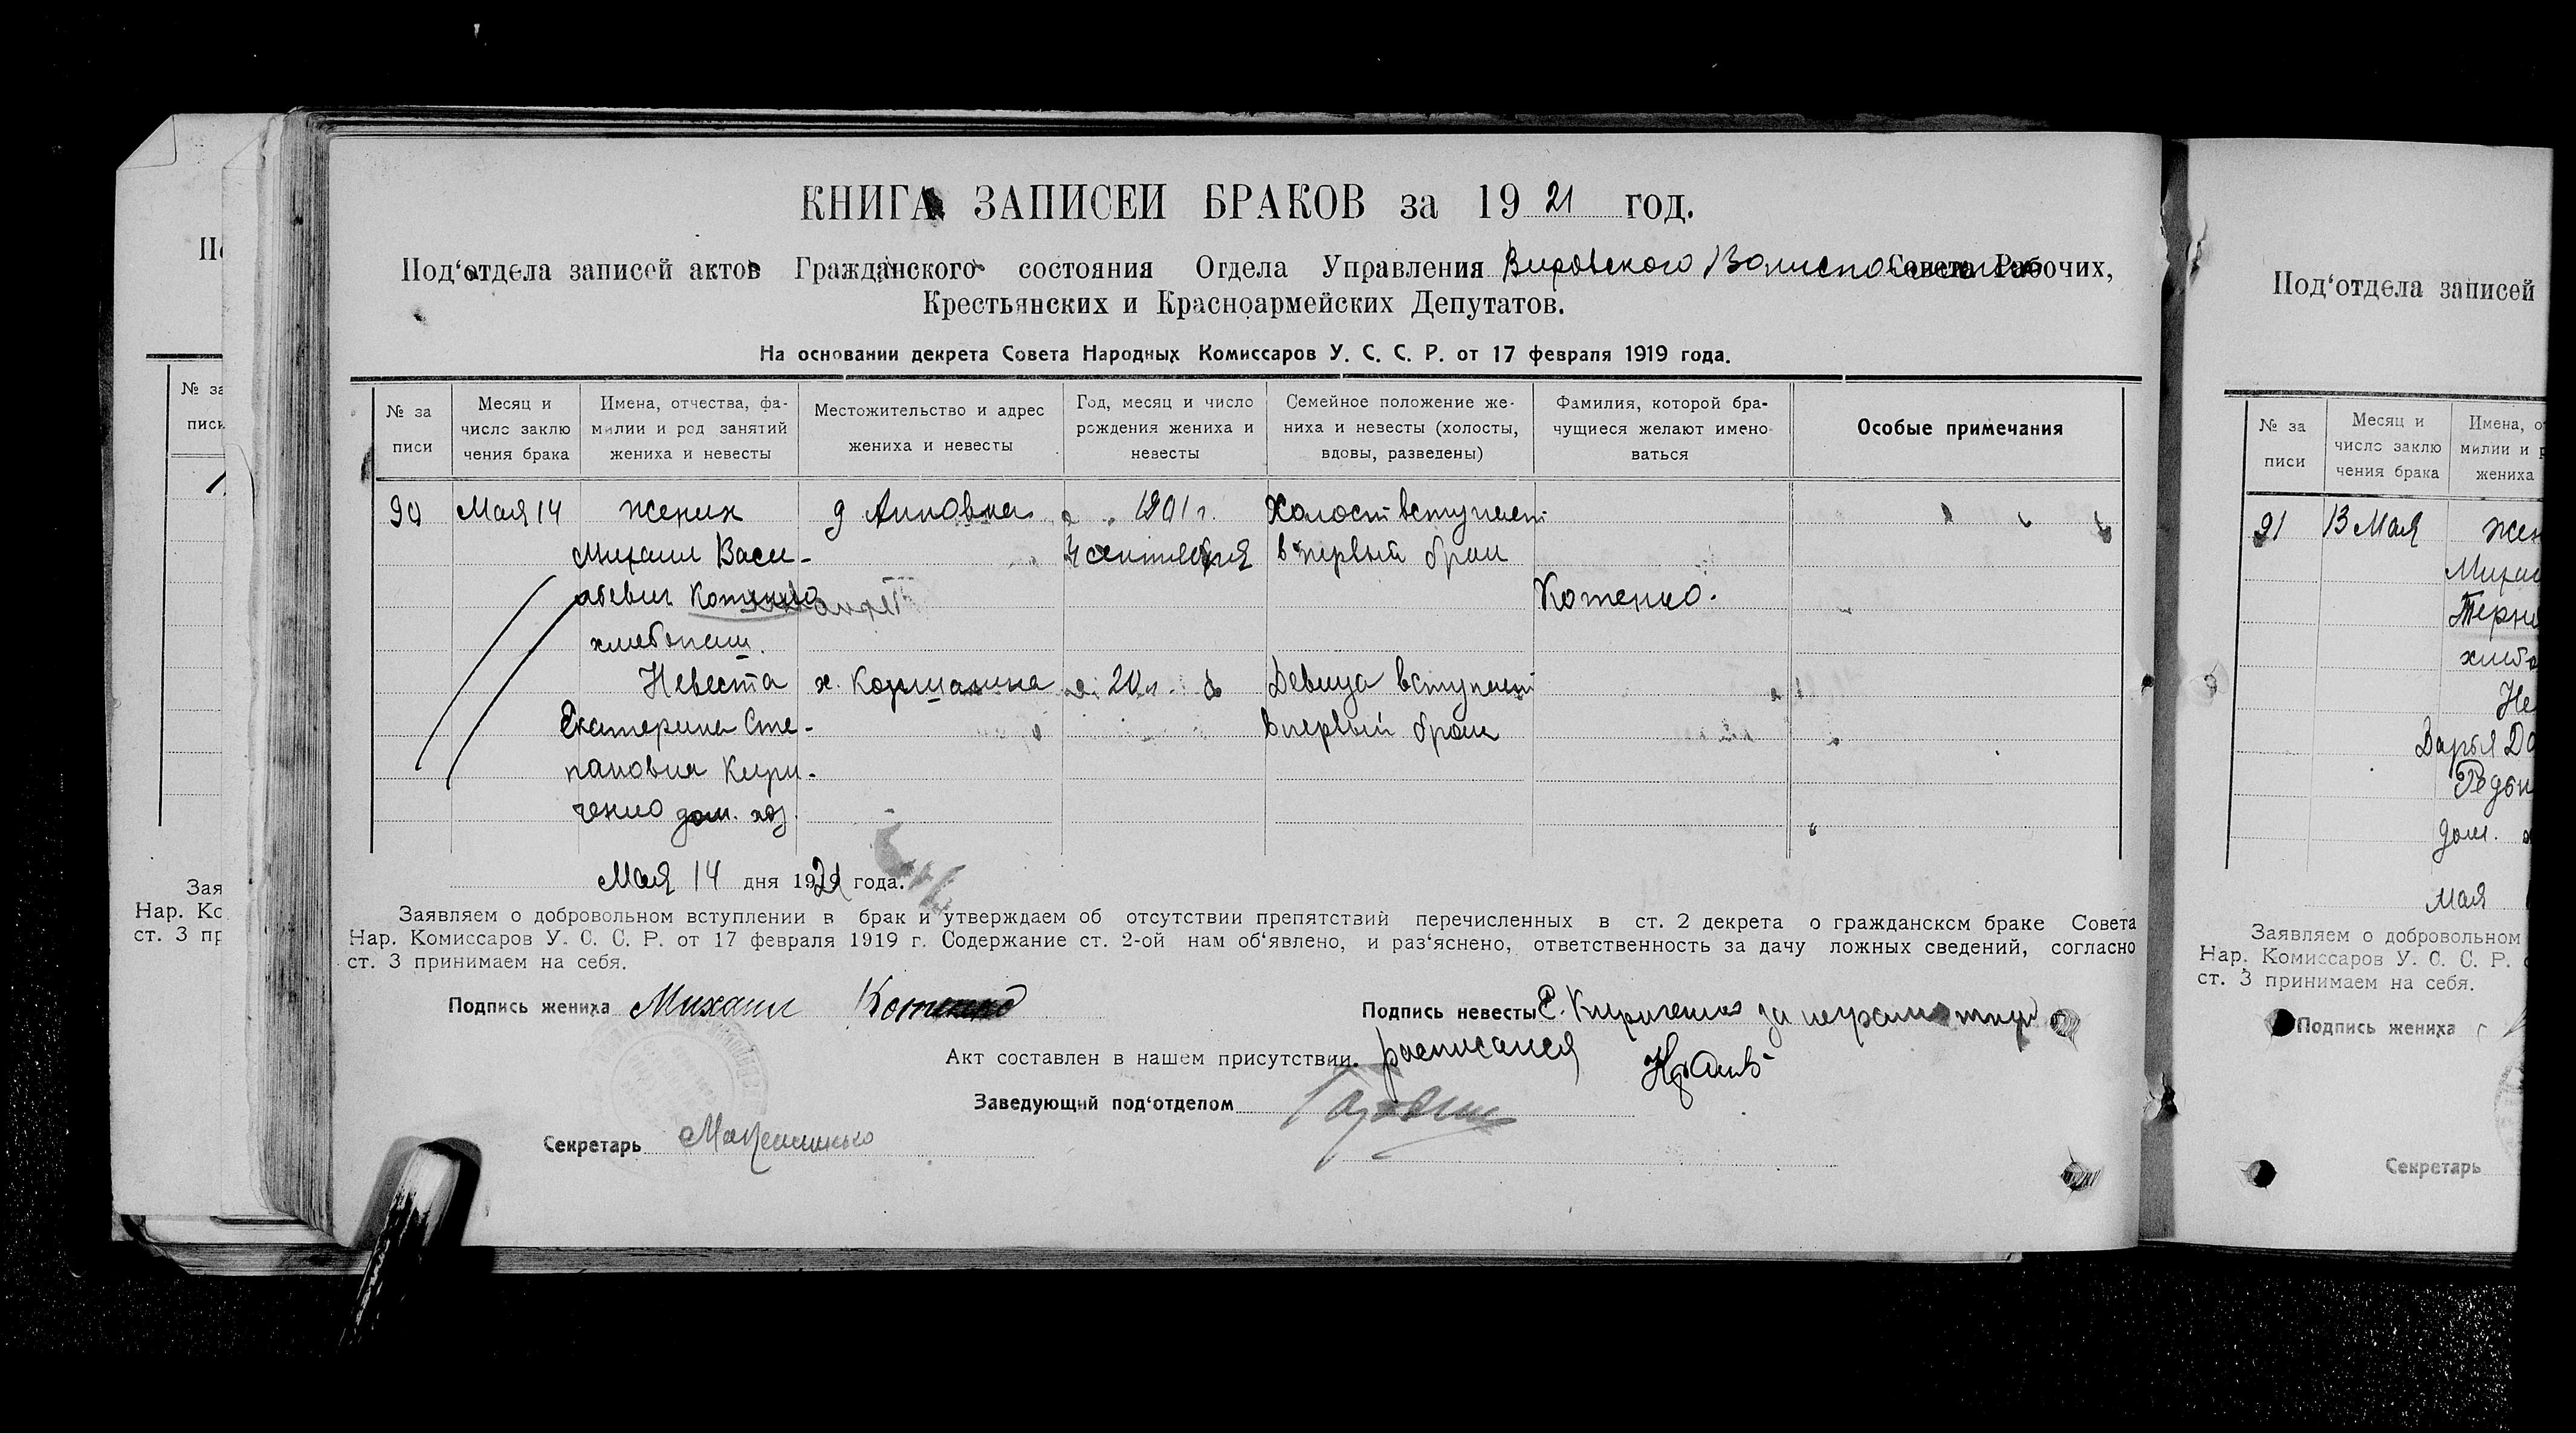 КНИГА ЗАПИСЕЙ БРАКОВ за 1921 год.
Под‘отдела записей актов Гражданского состояния Отдела Управления Вировского Волисполкома Совета Рабочих,
Крестьянских и Красноармейских Депутатов.
На основании декрета Совета Народных Комиссаров У. С. С. Р. от 17 февраля 1919 года.
№ за
писи
Месяц и
число заклю
чения брака
Имена, отчества, фа-
милии и род занятий
жениха и невесты
Местожительство и адрес
жениха и невесты
Год, месяц и число
рождения жениха и
невесты
Семейное положение же-
ниха и невесты (холосты,
вдовы, разведены)
Фамилия, которой бра-
чущиеся желают имено-
ваться
Особые примечания
90 Мая 14 жених д 1901 г. Холост вступает
Михаил Васи- 4 сентября в первый брак
льевич Котенко Котенко.
хлебопаш.
Невеста х. 20 л. Девица вступает
Екатерина Сте- в первый брак
пановна Кири-
ченко дом. хоз.
Мая 14 дня 1921 года.
Заявляем о добровольном вступлении в брак и утверждаем об отсутствии препятствий перечисленных в ст. 2 декрета о гражданском браке Совета
Нар. Комиссаров У. С. С. Р. от 17 февраля 1919 г. Содержание ст. 2-ой нам об‘явлено, и раз‘яснено, ответственность за дачу ложных сведений, согласно
ст. 3 принимаем на себя.
Подпись жениха Михаил Котенко
Подпись невесты Е. Кириченко за неграмотную
расписался
Акт составлен в нашем присутствии.
Заведующий под‘отделом
Секретарь
№ за
писи
Зая
Нар. Ко
ст. 3 пр
Под‘отдела записей
№ за
писи
Месяц и
число заклю
чения брака
Имена, о
милии и р
жениха
91 13 Мая жен
Михаи
Терни
хлебо
Не
Дарья Да
Редьк
дом. х
Мая 1
Заявляем о добровольном
Нар. Комиссаров У. С. С. Р. о
ст. 3 принимаем на себя.
Подпись жениха
Секретарь